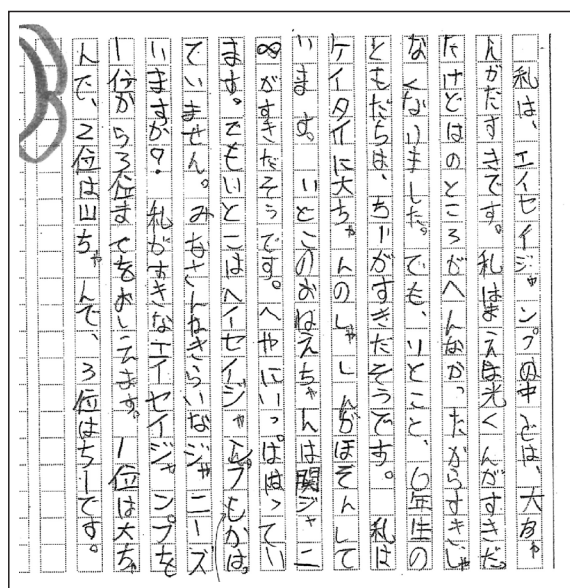 私は、エイセイジャンプの中では、大ちゃ
んがだすきです。私はまえは光くんがすきだっ
たけどはのところがへんながったがらすきじゃ
なくなりました。でも、いとこと、6年生の
ともだちは、ちーがすきだそうです。私は
ケイタイに大ちゃんのしゃしんがほぞんして
います。いとこのおねえちゃんは関ジャニ
∞がすきだそうです。へやにいっぱはってい
ます。でもいとこはヘイセイジャンプもかはっ
ていません。みなさんわきらいなジャニーズ
いますか?私がすきなエイセイジャンプを
1位がら3位までをおしえます。1位は大ちゃ
んで、2位は山ちゃんで、3位はちーです。